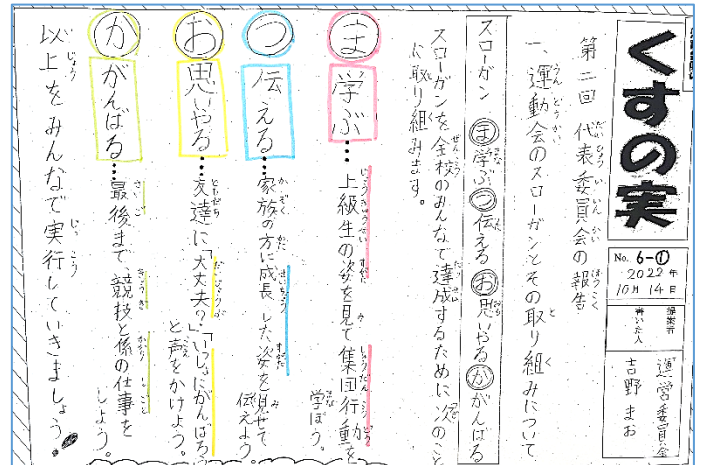 くすの実
No. 6-①
2022年
10月14日
提案者
書いた人
運営委員会
吉野 まお
第二回 代表委員会の報告
一、運動会のスローガンとその取り組みについて
スローガン ま学ぶ つ伝える お思いやる ががんばる
スローガンを全校のみんなで達成するために次のこと
に取り組みます。
ま 学ぶ…上級生の姿を見て集団行動を
学ぼう。
つ 伝える…家族の方に成長した姿を見せて
伝えよう。
お 思いやる…友達に「大丈夫?」「いっしょにがんばろう」
と声をかけよう。
か がんばる…最後まで競技と係の仕事を
しよう。
以上をみんなで実行していきましょう!